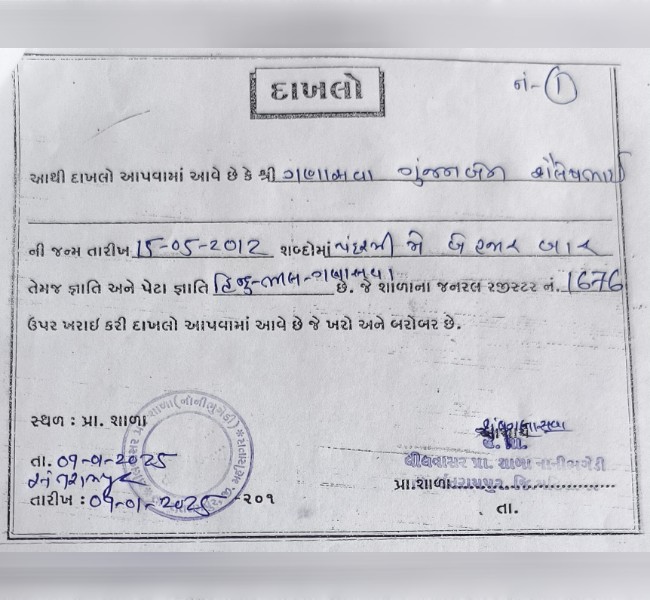 દાખલો
નં-(1)
આથી દાખલો આપવામાં આવે છે કે શ્રી ગણાસવા ગુંજનબેન શૈલેષભાઈ
ની જન્મ તારીખ 15-05-2012 શબ્દોમાં પંદરમી મે બે હજાર બાર
તેમજ જ્ઞાતિ અને પેટા જ્ઞાતિ હિન્દુ-ભીલ-ગણાસવા છે. જે શાળાના જનરલ રજીસ્ટર નં. 1676
ઉપર ખરાઈ કરી દાખલો આપવામાં આવે છે જે ખરો અને બરોબર છે.
સ્થળ : પ્રા. શાળા
તા. 09-01-2025
તારીખ : 09-01-2025 -૨૦૧
આચાર્ય
પ્રા. શાળા નાનીભુગેડી
પ્રા.શાળા
તા.